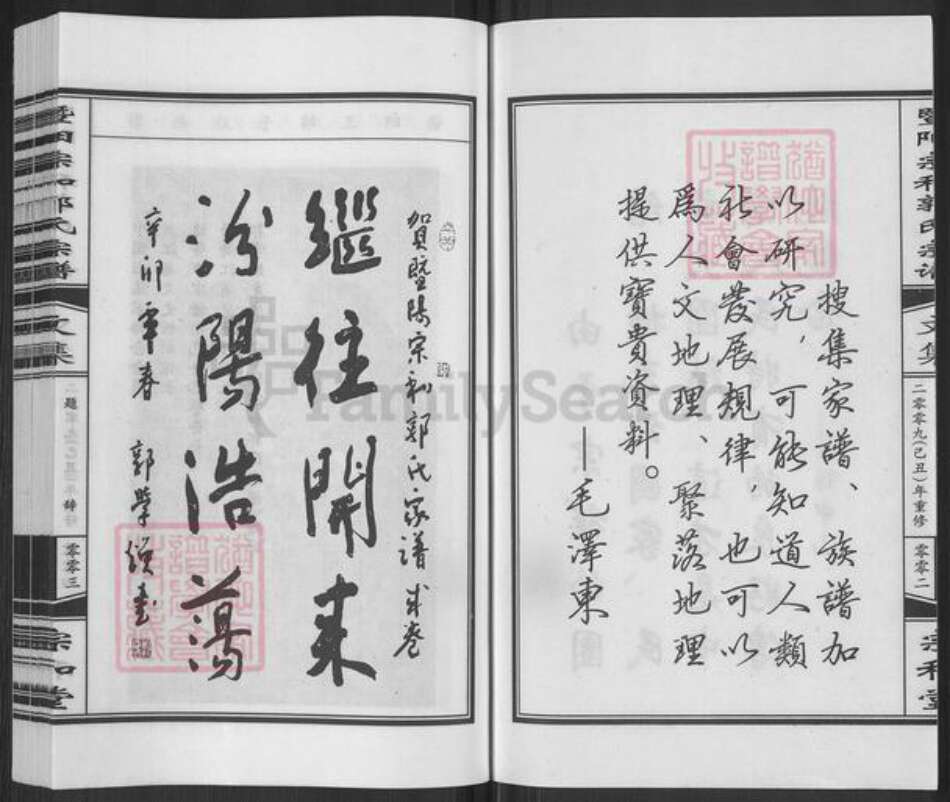 暨陽宗和郭氏宗譜
文集
二零零九(己丑)年重修
零零二
宗和堂
搜集家譜、族譜加
以研究，可能知道人類
社會發展規律。也可以
爲人文地理、聚落地理
提供寶貴資料。
—毛澤東
賀暨陽宗和郭氏家譜成卷
繼往開來
汾陽浩蕩
辛卯年春
郭學
書
暨陽宗和郭氏宗譜
文集
題辞
零零三
宗和堂
FamilySearch